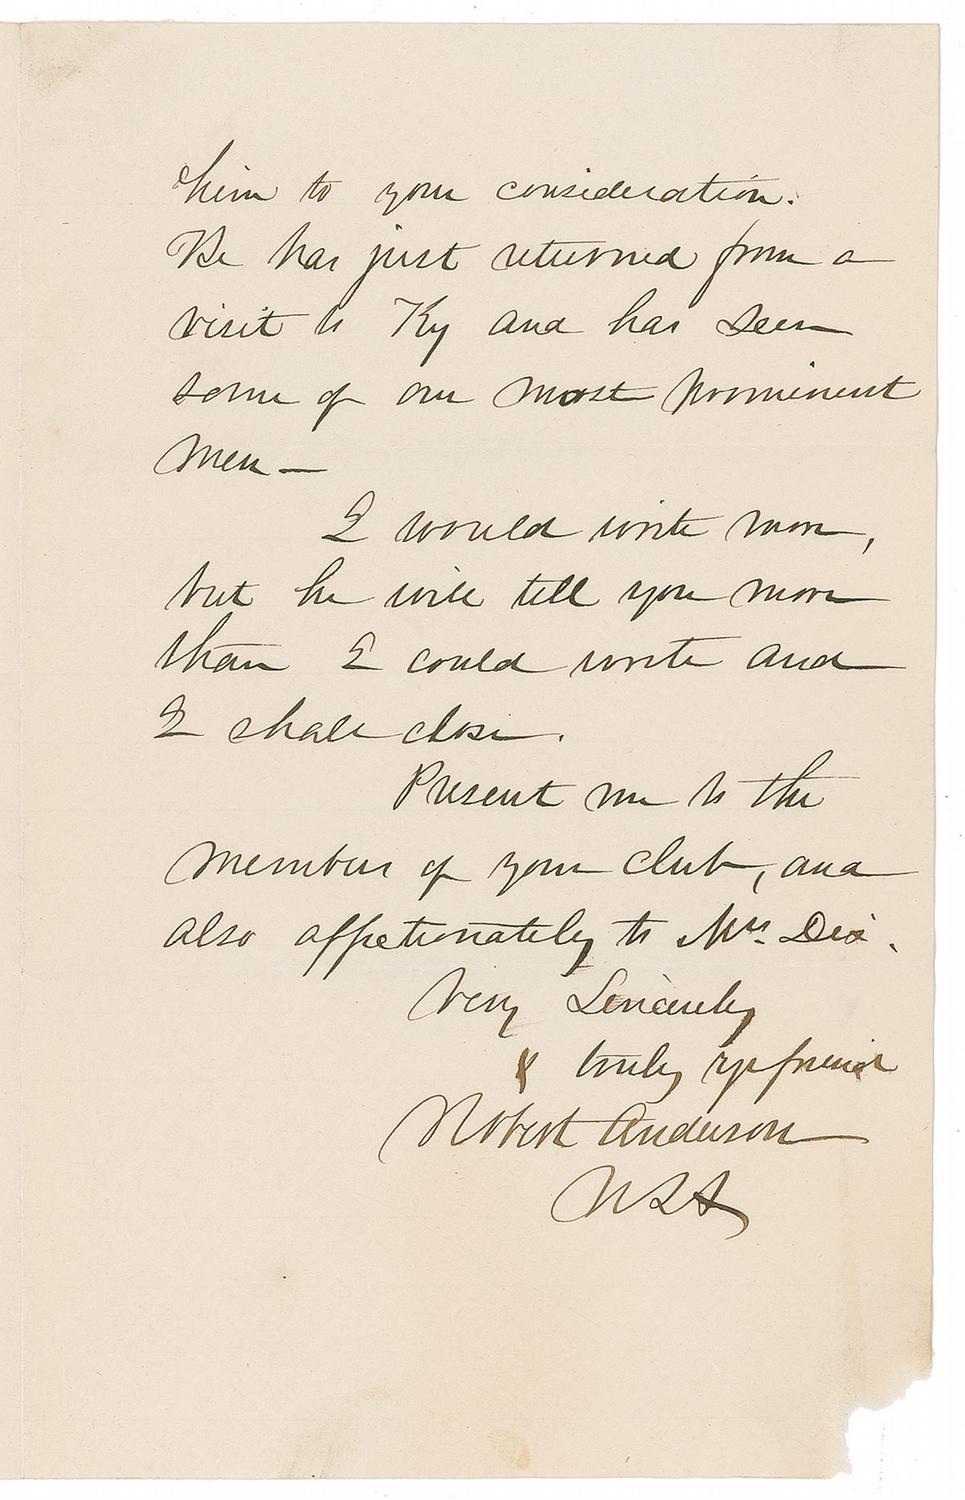 him to your consideration.
He has just returned from a
visit to Ky and has seen
some of our most prominent
men —
I would write more,
but he will tell you more
than I could write and
I shall close.
Present me to the
members of your club, and
also affectionately to Mrs. Dix.
Very Sincerely
& truly yr friend
Robert Anderson
USA